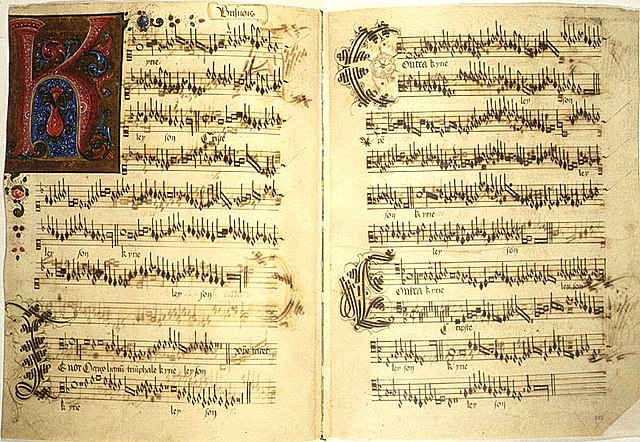 Busnois
K
yrie
ley son Criste
ley son kyrie
ley son
kyrie ley son
Contra kyrie
ley son
Xpe
ley
son kyrie
ley son
Contra kyrie ley son
Criste
ley son kyrie
ley son